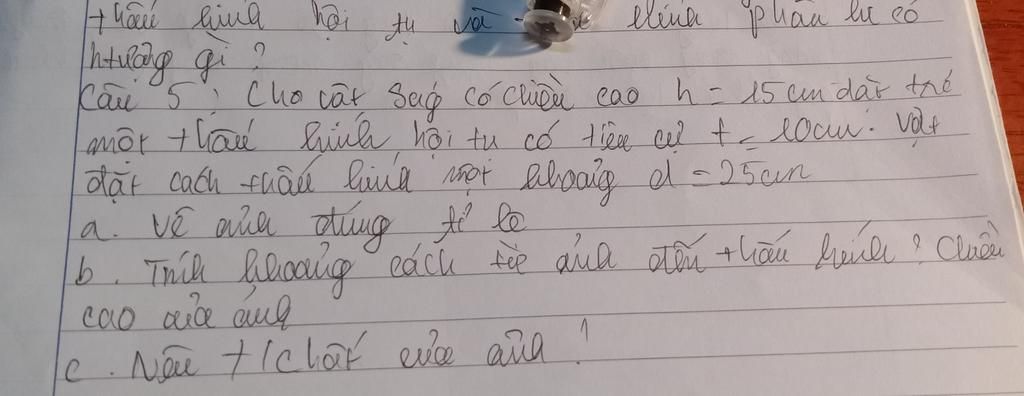 thấu kính hội tụ và kính phân kì có
htượng gì?
Câu 5: Cho vật sáng có chiều cao h = 15 cm đặt trc
một thấu kính hội tụ có tiêu cự f = 10cm. Vật
đặt cách thấu kính một khoảng d = 25cm
a. Vẽ ảnh đúng tỉ lệ
b. Tính khoảng cách từ ảnh đến thấu kính? Chiều
cao của ảnh
c. Nêu t/chất của ảnh!